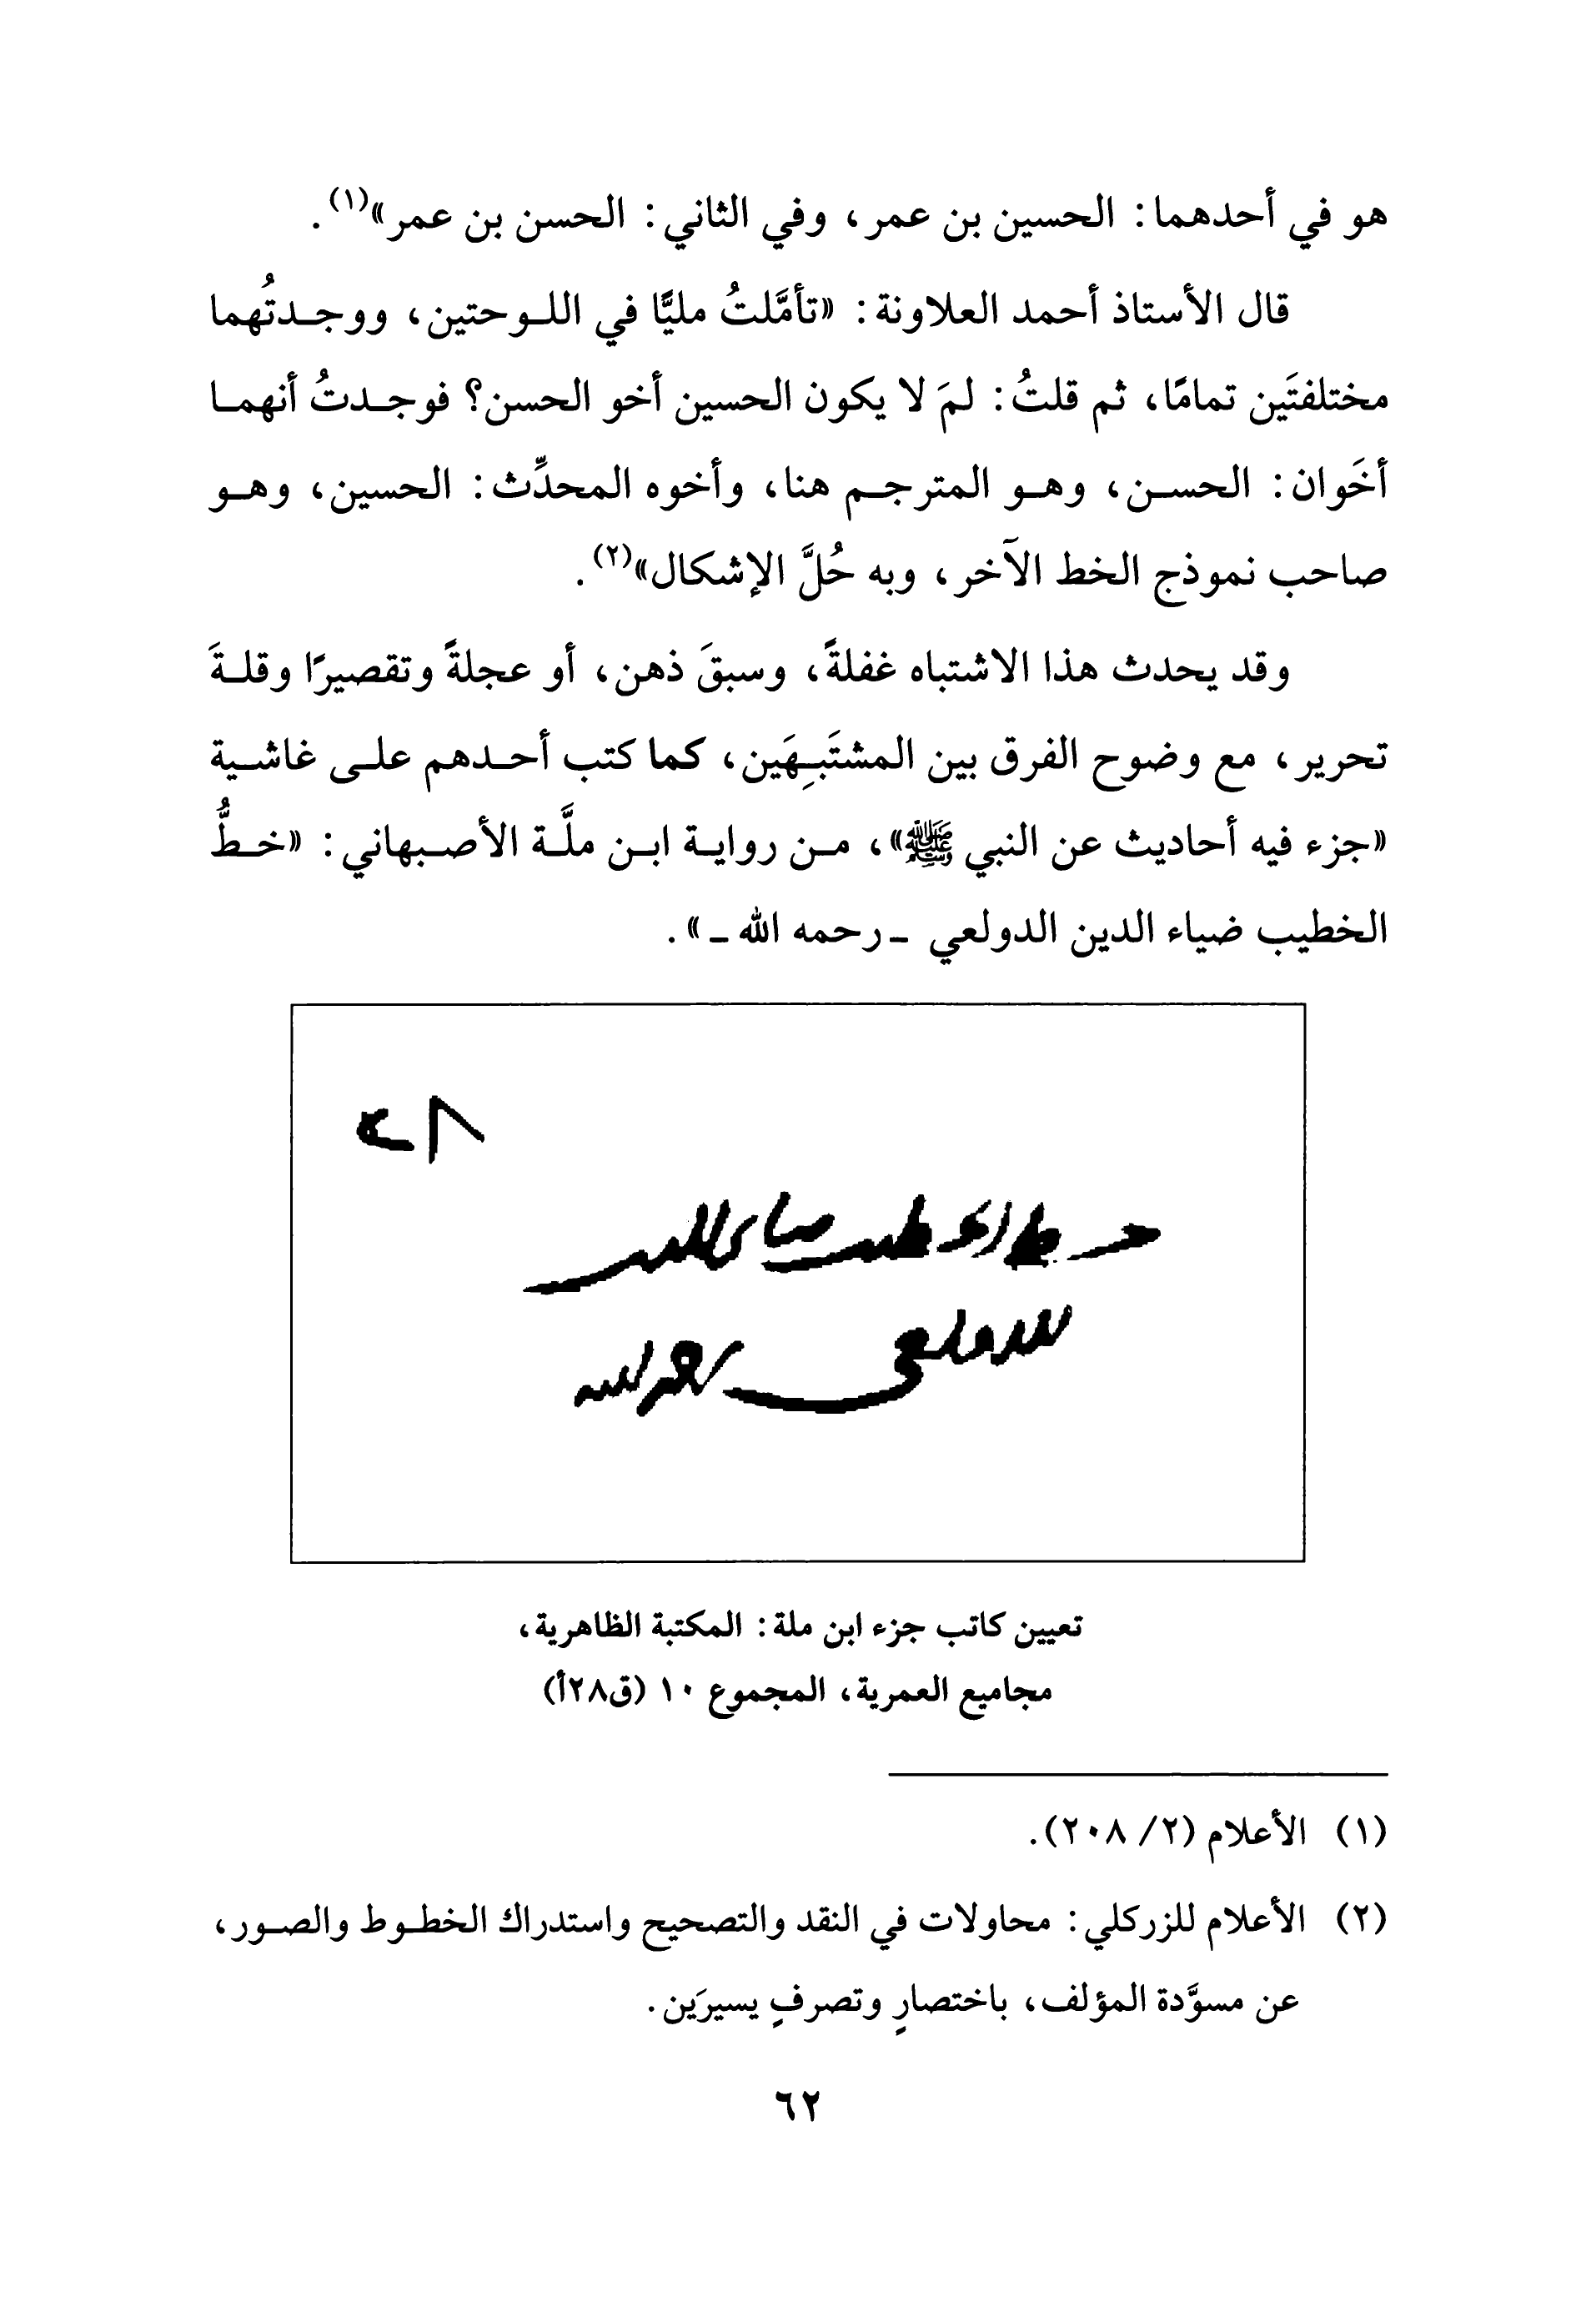 هو في أحدهما: الحسين بن عمر، وفي الثاني: الحسن بن عمر»(١).
قال الأستاذ أحمد العلاونة: «تأمَّلتُ مليًّا في اللوحتين، ووجدتُهما
مختلفتَين تمامًا، ثم قلتُ: لمَ لا يكون الحسين أخو الحسن؟ فوجدتُ أنهما
أخَوان: الحسن، وهو المترجم هنا، وأخوه المحدِّث: الحسين، وهو
صاحب نموذج الخط الآخر، وبه حُلَّ الإشكال»(٢).
وقد يحدث هذا الاشتباه غفلةً، وسبقَ ذهن، أو عجلةً وتقصيرًا وقلةَ
تحرير، مع وضوح الفرق بين المشتَبِهَين، كما كتب أحدهم على غاشية
«جزء فيه أحاديث عن النبي ﷺ»، من رواية ابن ملَّة الأصبهاني: «خطُّ
الخطيب ضياء الدين الدولعي - رحمه الله -».
خط الخطيب ضياء الدين
الدولعي رحمه الله
تعيين كاتب جزء ابن ملة: المكتبة الظاهرية،
مجاميع العمرية، المجموع ١٠ (ق٢٨أ)
(١) الأعلام (٢/ ٢٠٨).
(٢) الأعلام للزركلي: محاولات في النقد والتصحيح واستدراك الخطوط والصور،
عن مسوَّدة المؤلف، باختصارٍ وتصرفٍ يسيرَين.
٦٢